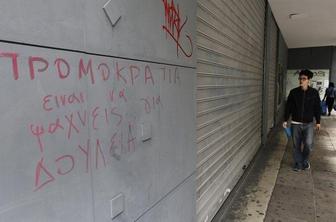 ΤΡΟΜΟΚΡΑΤΙΑ
είναι να
ψΑΧΝΕΙΣ για
ΔΟΥΛΕΙΑ